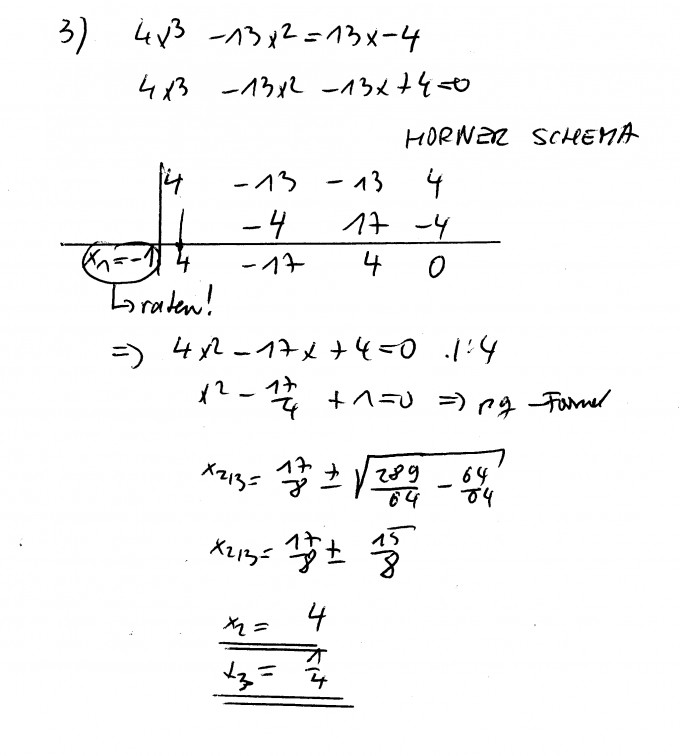 3) 4x³ -13x² = 13x - 4
4x³ -13x² -13x + 4 = 0
HORNER SCHEMA
4 -13 -13 4
-4 17 -4
x₁ = -1 4 -17 4 0
↳ raten!
=> 4x² - 17x + 4 = 0 |:4
x² - 17/4 + 1 = 0 => pq-Formel
x₂/₃ = 17/8 ± √(289/64 - 64/64)
x₂/₃ = 17/8 ± 15/8
x₂ = 4
x₃ = 1/4